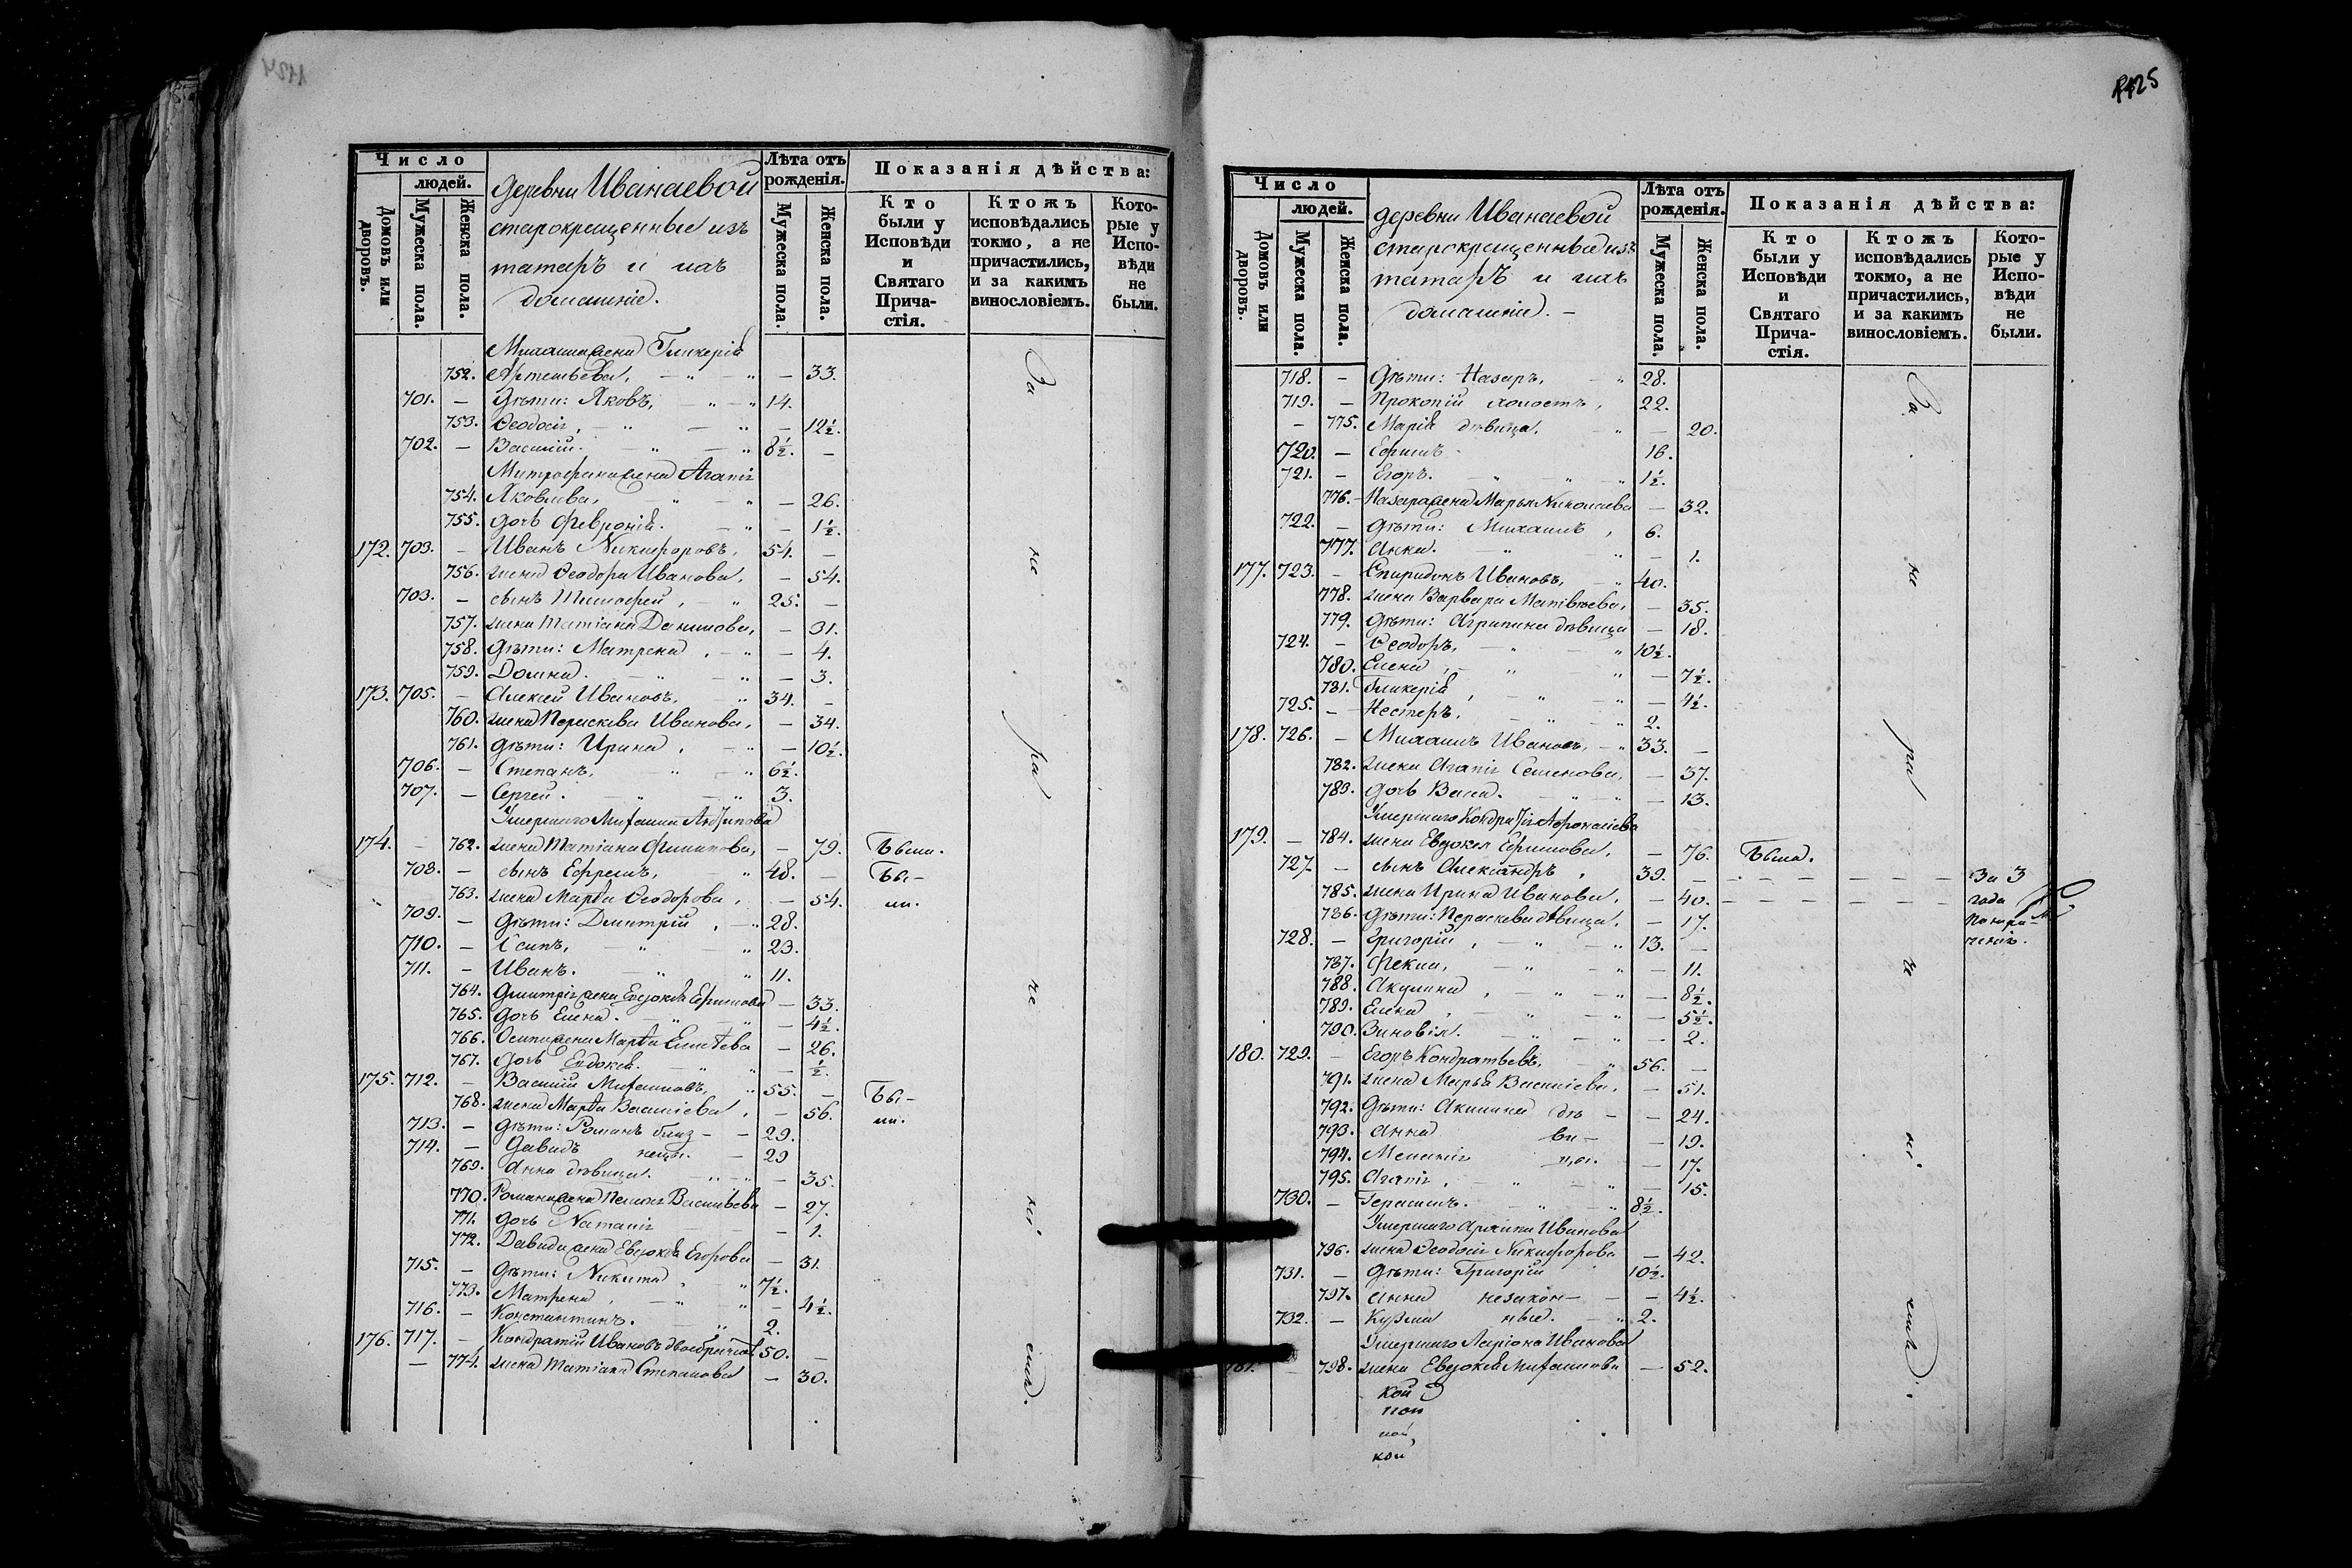 Число
людей.
Домовъ или дворовъ.
Мужеска пола.
Женска пола.
деревни Иванаевой
старокрещенные изъ
татаръ и ихъ
домашніе.
Лѣта отъ рожденія.
Мужеска пола.
Женска пола.
Показанія дѣйства:
Кто были у Исповѣди и Святаго Причастія.
Ктожъ исповѣдались токмо, а не причастились, и за какимъ винословіемъ.
Которые у Исповѣди не были.
Михаила жена Гликерія
752. Артемьева, — 33.
701. — Дѣти: Яковъ, 14.
753. Ѳеодосія, — 12½.
702. — Василій. 8½. —
Митрофана жена Агапія
754. Яковлева, — 26.
755. дочь Февронія. — 1½.
172. 703. — Иванъ Никифоровъ, 54. —
756. жена Ѳеодора Иванова, — 54.
703. — сынъ Тимофей, 25. —
757. жена Татіана Данилова, — 31.
758. Дѣти: Матрена, — 4.
759. Домна. — 3.
173. 705. — Алексей Ивановъ, 34. —
760. жена Параскева Иванова, — 34.
761. дѣти: Ирина, — 10½.
706. — Степанъ, 6½.
707. — Сергей. 3.
Умершаго Михаила Антипова
174. — 762. жена Татіана Филипова, — 79. Были.
708. — сынъ Ефремъ, 48. — Бы-
763. жена Марѳа Ѳеодорова, — 54. ли.
709. — дѣти: Дмитрій, 28.
710. — Есипъ, 23.
711. — Иванъ. 11.
764. Дмитрія жена Евдокія Ефимова — 33.
765. дочь Елена. — 4½.
766. Осипа жена Марѳа — 26.
767. дочь Евдокія. — ½.
175. 712. — Василій Михайловъ, 55. — Бы-
768. жена Марѳа Василіева, — 56. ли.
713. — дѣти: Романъ близ- 29.
714. — Давидъ нецы. — 29
769. Анна дѣвица. — 35.
770. Романа жена Пелагія Васильева — 27.
771. дочь Наталія — 1.
772. Давида жена Евдокія Егорова — 31.
715. — дѣти: Никита, 7½.
773. Матрена, — 4½.
716. — Константинъ. 2.
176. 717. — Кондратій Ивановъ двоебрачный 50. —
— 774. жена Татіана Степанова — 30.
За не ра че ні емъ.
1425
Число
людей.
Домовъ или дворовъ.
Мужеска пола.
Женска пола.
деревни Иванаевой
старокрещенные изъ
татаръ и ихъ
домашніе. —
Лѣта отъ рожденія.
Мужеска пола.
Женска пола.
Показанія дѣйства:
Кто были у Исповѣди и Святаго Причастія.
Ктожъ исповѣдались токмо, а не причастились, и за какимъ винословіемъ.
Которые у Исповѣди не были.
718. — Дѣти: Назаръ, 28.
719. — Прокопій холостъ, 22.
— 775. Марія дѣвица. — 20.
720. — Ефимъ 16.
721. — Егоръ. 1½.
776. Назара жена Марья Николаева — 32.
722. — дѣти: Михаилъ, 6.
777. Анна. — 1.
177. 723. — Спиридонъ Ивановъ, 40.
778. жена Варвара Матвѣева, — 35.
779. дѣти: Агрипина дѣвица — 18.
724. — Ѳеодоръ, 10½.
780. Елена, — 7½.
781. Гликерія, — 4½.
725. — Нестеръ. 2.
178. 726. — Михаилъ Ивановъ, 33. —
782. жена Агапія Семенова, — 37.
783. дочь Васса. — 13.
Умершаго Кондратія Афонасіева
179. — 784. жена Евдокея Ефимова, — 76. Была.
727. — сынъ Александръ, 39. — За 3
785. жена Ирина Иванова, — 40. года
786. дѣти: Параскева дѣвица, — 17. по нера-
728. — Григорій, 13. — ченію.
787. Фекла, — 11.
788. Акулина, — 8½.
789. Елена, — 5½.
790. Зиновія. — 2.
180. 729. — Егоръ Кондратьевъ, 56. —
791. жена Марья Василіева, — 51.
792. Дѣти: Акилина дѣ- — 24.
793. Анна ви- — 19.
794. Меланія цы. — 17.
795. Агапія, — 15.
730. — Герасимъ. 8½.
Умершаго Архипа Иванова
796. жена Ѳеодосія Никифорова — 42.
731. — Дѣти: Григорій 10½.
797. Анна незакон- — 4½.
732. — Кузма ные. 2.
Умершаго Ларіона Иванова
181. — 798. жена Евдокія Михайлова — 52.
За не ра че ні емъ.
кой
ной
ной
кой